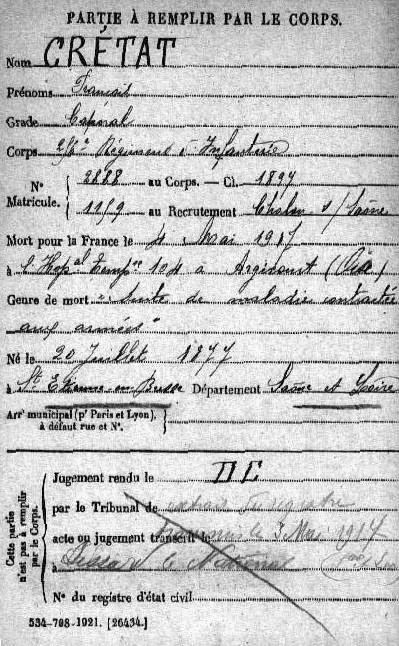 PARTIE À REMPLIR PAR LE CORPS.
Nom CRÉTAT
Prénoms Francois
Grade Caporal
Corps 216e Régiment d'Infanterie
N° Matricule. 2888 au Corps. — Cl. 1897
1159 au Recrutement Chalon s/Saône
Mort pour la France le 4 Mai 1917
à l'Hopal Tempre 104 a Argicourt (Oise)
Genre de mort "Suite de maladie contractée
aux armées"
Né le 20 Juillet 1877
à St Etienne en Bresse Département Saône et Loire
Arrt municipal (pr Paris et Lyon),
à défaut rue et N°.
Cette partie n'est pas à remplir par le Corps.
Jugement rendu le DC
par le Tribunal de
acte ou jugement transcrit le 3 Mai 1917
à
N° du registre d'état civil
534-708-1921. [26434.]